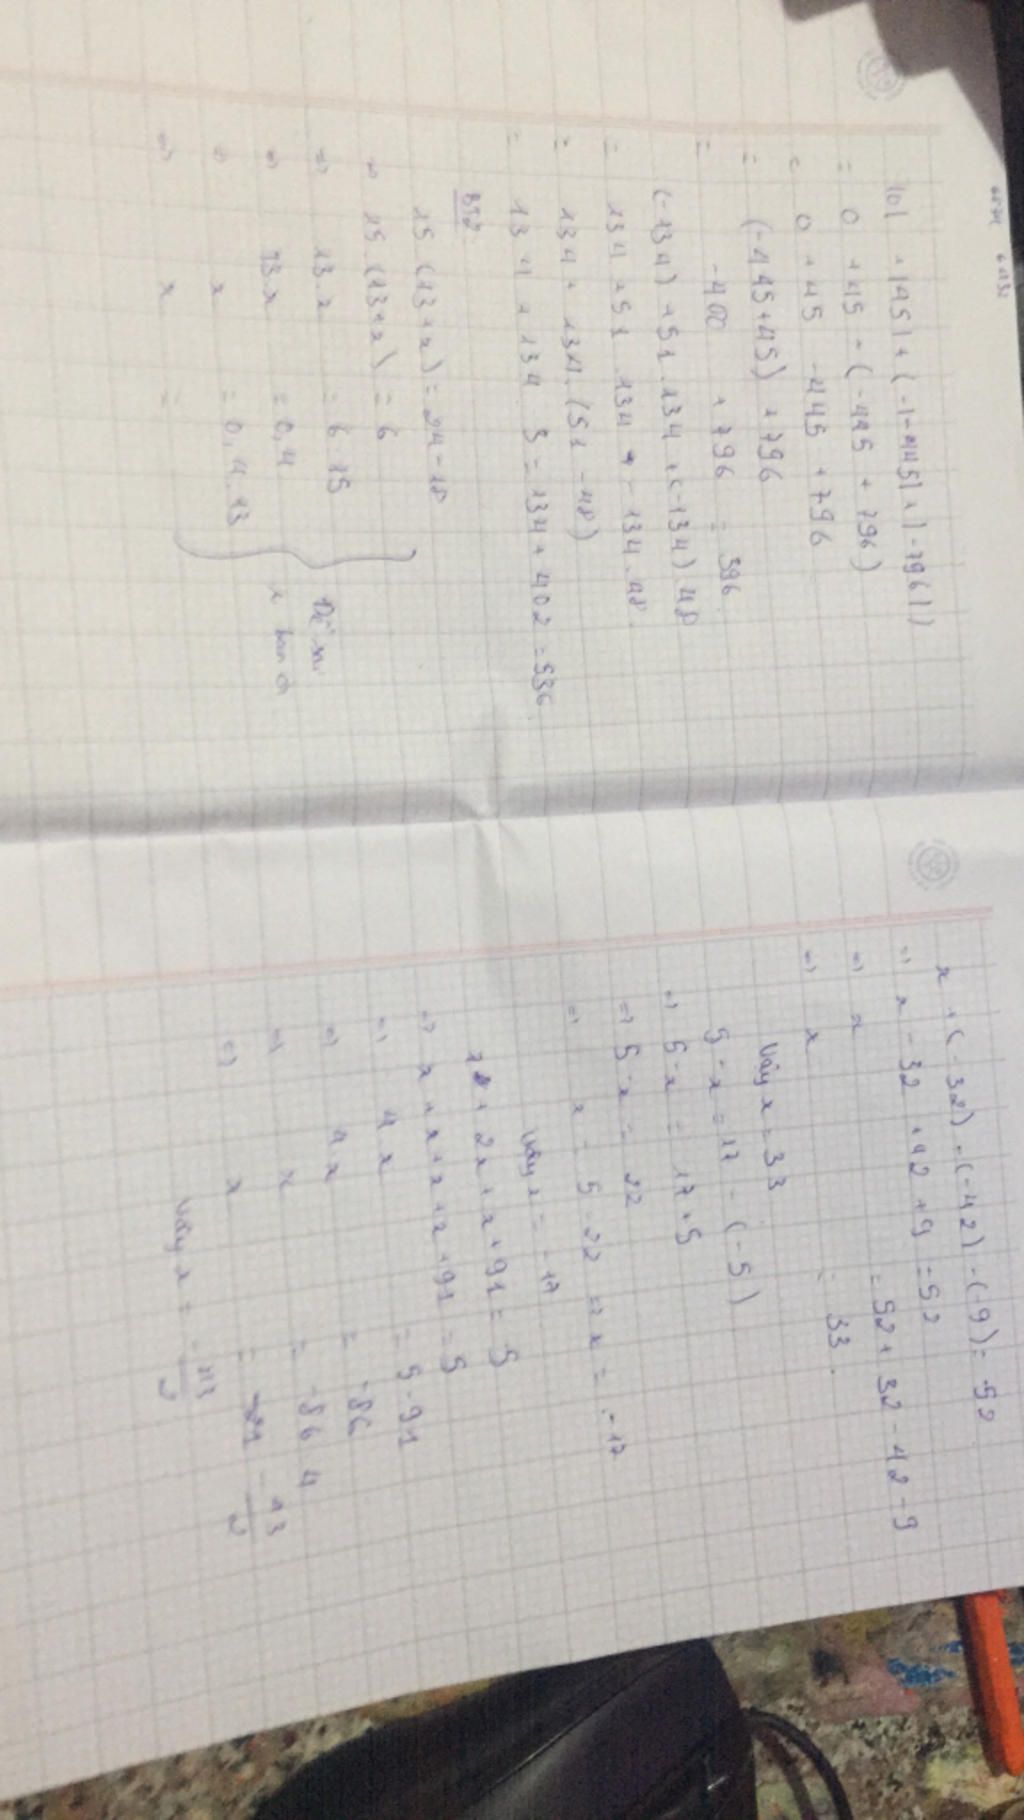 |0| + |45| + (-|-445| + |-796|)
= 0 + 45 - (-445 + 796)
= 0 + 45 - 445 + 796
= (-445+45) + 796
= -400 + 796 = 396
(-134) + 51.134 + (-134).48
= 134 + 51.134 + -134.48
= 134 + 134.(51-48)
= 134 + 134.3 = 134 + 402 = 536
BT2
15(13+x) = 24-18
=> 15.(13+x) = 6
=> 13.x = 6.15
=> 13.x = 0,4
=> x = 0,4.13
=> x =
Đề sai
x + (-32) - (-42) - (-9) = 52
=> x - 32 + 42 + 9 = 52
=> x = 52 + 32 - 42 - 9
=> x = 33.
Vậy x = 33
5 - x = 17 - (-5)
=> 5 - x = 17+5
=> 5 - x = 22
=> x = 5-22 => x = -17
Vậy x = -17
x + 2x + x + 91 = 5
=> x + x + x + x + 91 = 5
=> 4x = 5-91
=> 4x = -86
=> x = -86 4
=> x =
Vậy x =